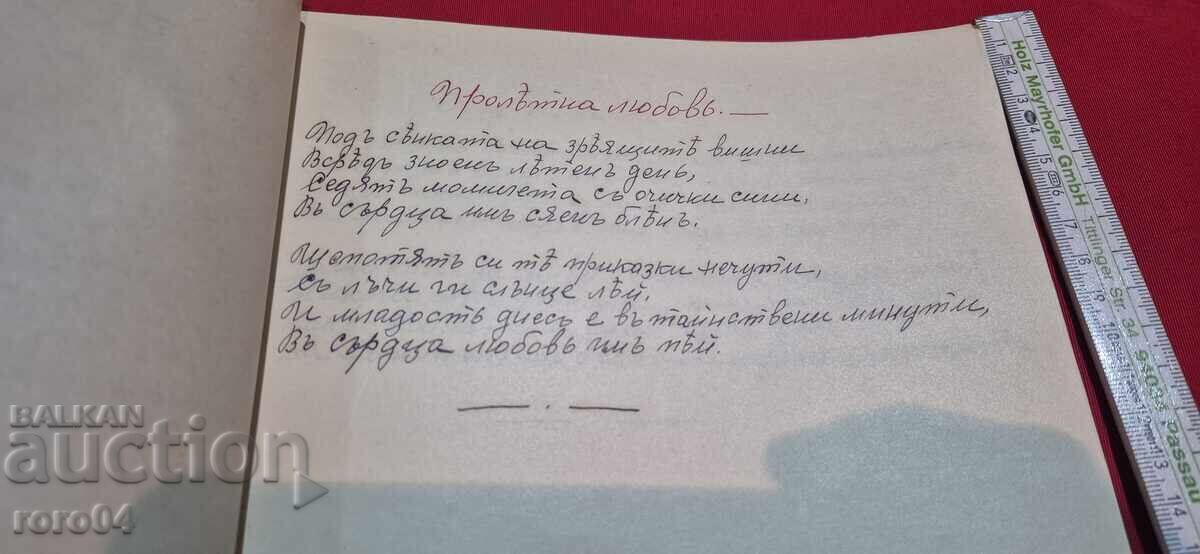 Пролѣтна любовь.—
Подъ сѣнката на зрѣящитѣ вишни
Всрѣдъ зноенъ лѣтенъ день,
Седятъ момичета съ очички сини,
Въ сърдца имъ сяенъ блѣнъ.
Шепотятъ си тѣ приказки нечути,
Съ лъчи ги слънце лѣй.
И младость днесь е въ тайнствени минути,
Въ сърдца любовь имъ пѣй.
Holz Mayrhofer GmbH Ittlinger Str. 34 94034 Passau
BALKAN
auction
roro04